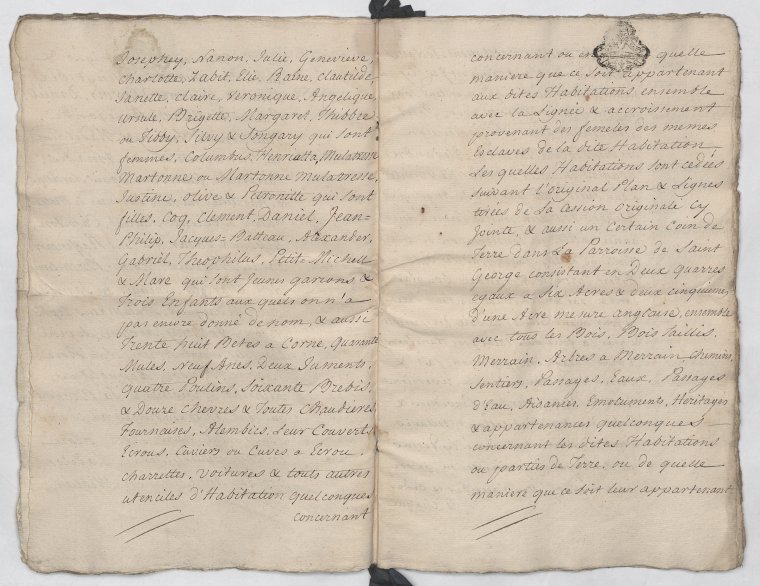 Josephey, Nanon, Julie, Genevieve,
Charlotte, Zabit, Elie, Raine, Clautilde,
Janette, Claire, Veronique, Angelique,
Ursule, Brigette, Margaret, Thibbee
ou Tibby, Silvy & Songary qui sont
femmes, Columbus, Henrietta, Mulatresse
Martonne ou Martonne mulatresse,
Justine, Olive & Petronille qui sont
filles, Coq, Clement, Daniel, Jean=
Philip, Jacques=Batteau, Alexander,
Gabriel, Theophilus, Petit=Michell
& Mare qui sont Jeunes garçons, &
Trois Enfants aux quels on n'a
pas encore donné de nom, & aussi
Trente huit Betes a Corne, Quarante
Mules, Neuf Anes, Deux Juments,
Quatre Poulins, Soixante Brebis,
& Douze Chevres & Toutes Chaudieres
Fournaises, Alembics, Leur Couverts
Ecrous, Cuviers ou Cuves a Ecrou,
charrettes, Voitures & touts autres
utenciles d'Habitation quelconques
concernant
concernant ou en quelle
maniere que ce soit appartenant
aux dites Habitations, ensemble
avec la Lignée & accroissement
provenant des femeles des memes
Esclaves de la dite Habitation,
Les quelles Habitations sont cedées
suivant l'original Plan & Lignes
tirées de La Cession originale Cy
Jointe, & aussi un Certain Coin de
Terre dans La Parroise de Saint
George consistant en Deux quarres
egaux a Six Acres & deux cinquiemes
d'une Acre mesure anglaise, ensemble
avec tous les Bois, Bois taillis,
Merrain, Arbres a Merrain, Chemins,
Sentiers, Passages, Eaux, Passages
d'Eau, Aisances, Emoluments, Heritages
& appartenances quelconques
concernant les dites Habitations
ou partis de Terre, ou de quelle
maniere que ce soit leur appartenant